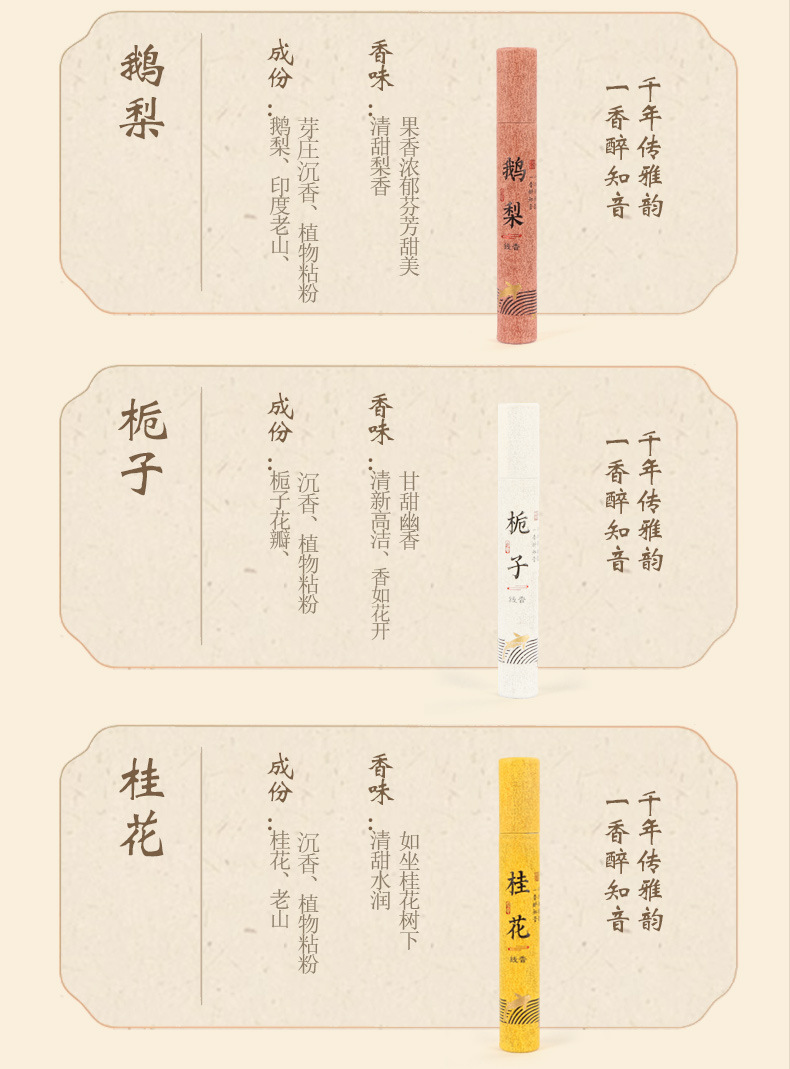 鹅梨
成份：
鹅梨、印度老山、
芽庄沉香、植物粘粉
香味：
清甜梨香
果香浓郁芬芳甜美
鹅梨
线香
千年传雅韵
一香醉知音
栀子
成份：
栀子花瓣、
沉香、植物粘粉
香味：
清新高洁、香如花开
甘甜幽香
栀子
线香
千年传雅韵
一香醉知音
桂花
成份：
桂花、老山
沉香、植物粘粉
香味：
清甜水润
如坐桂花树下
桂花
线香
千年传雅韵
一香醉知音